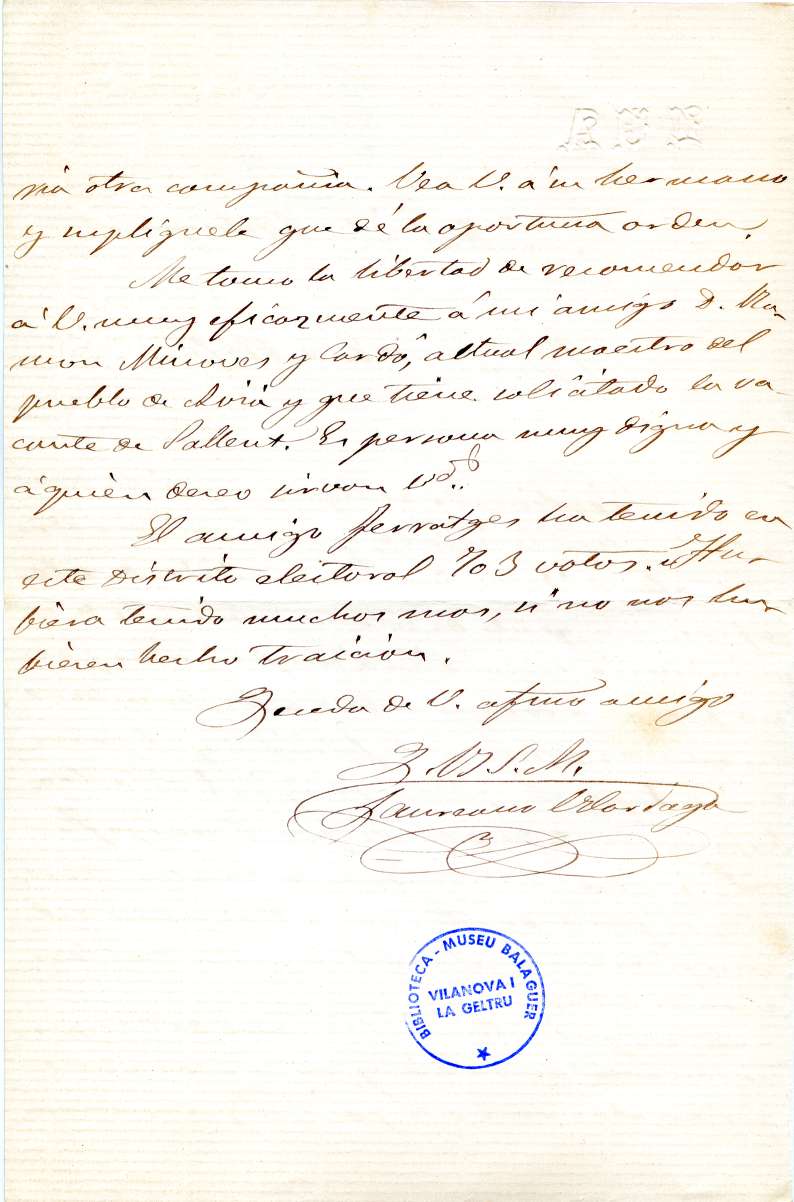 ria otra compañia. Vea V. á su hermano
y supliquele que dé la oportuna orden.
Me tomo la libertad de recomendar
á V. muy eficazmente á mi amigo D. Ra-
mon Minoves y Cardó, actual maestro del
pueblo de Aviá y que tiene solicitado la va-
cante de Sallent. Es persona muy digna y
á quién deseo sirvan Vds.
El amigo Ferratges ha tenido en
este distrito eleitoral 703 votos. Hu-
biera tenido muchos mas, si no nos hu-
biesen hecho traición.
Queda de V. afmo amigo
Q.B.S.M.
Laureano
BIBLIOTECA - MUSEU BALAGUER
VILANOVA I
LA GELTRU